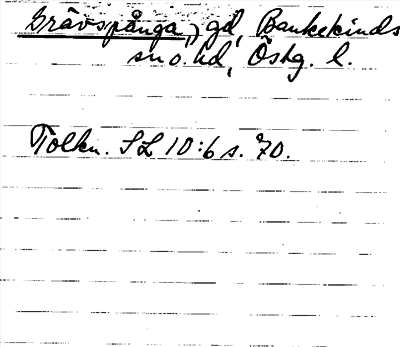 Grävspånga, gd, Bankekinds
sn o. hd, Östg. l.
Tolkn. SL 10:6 s. 70.